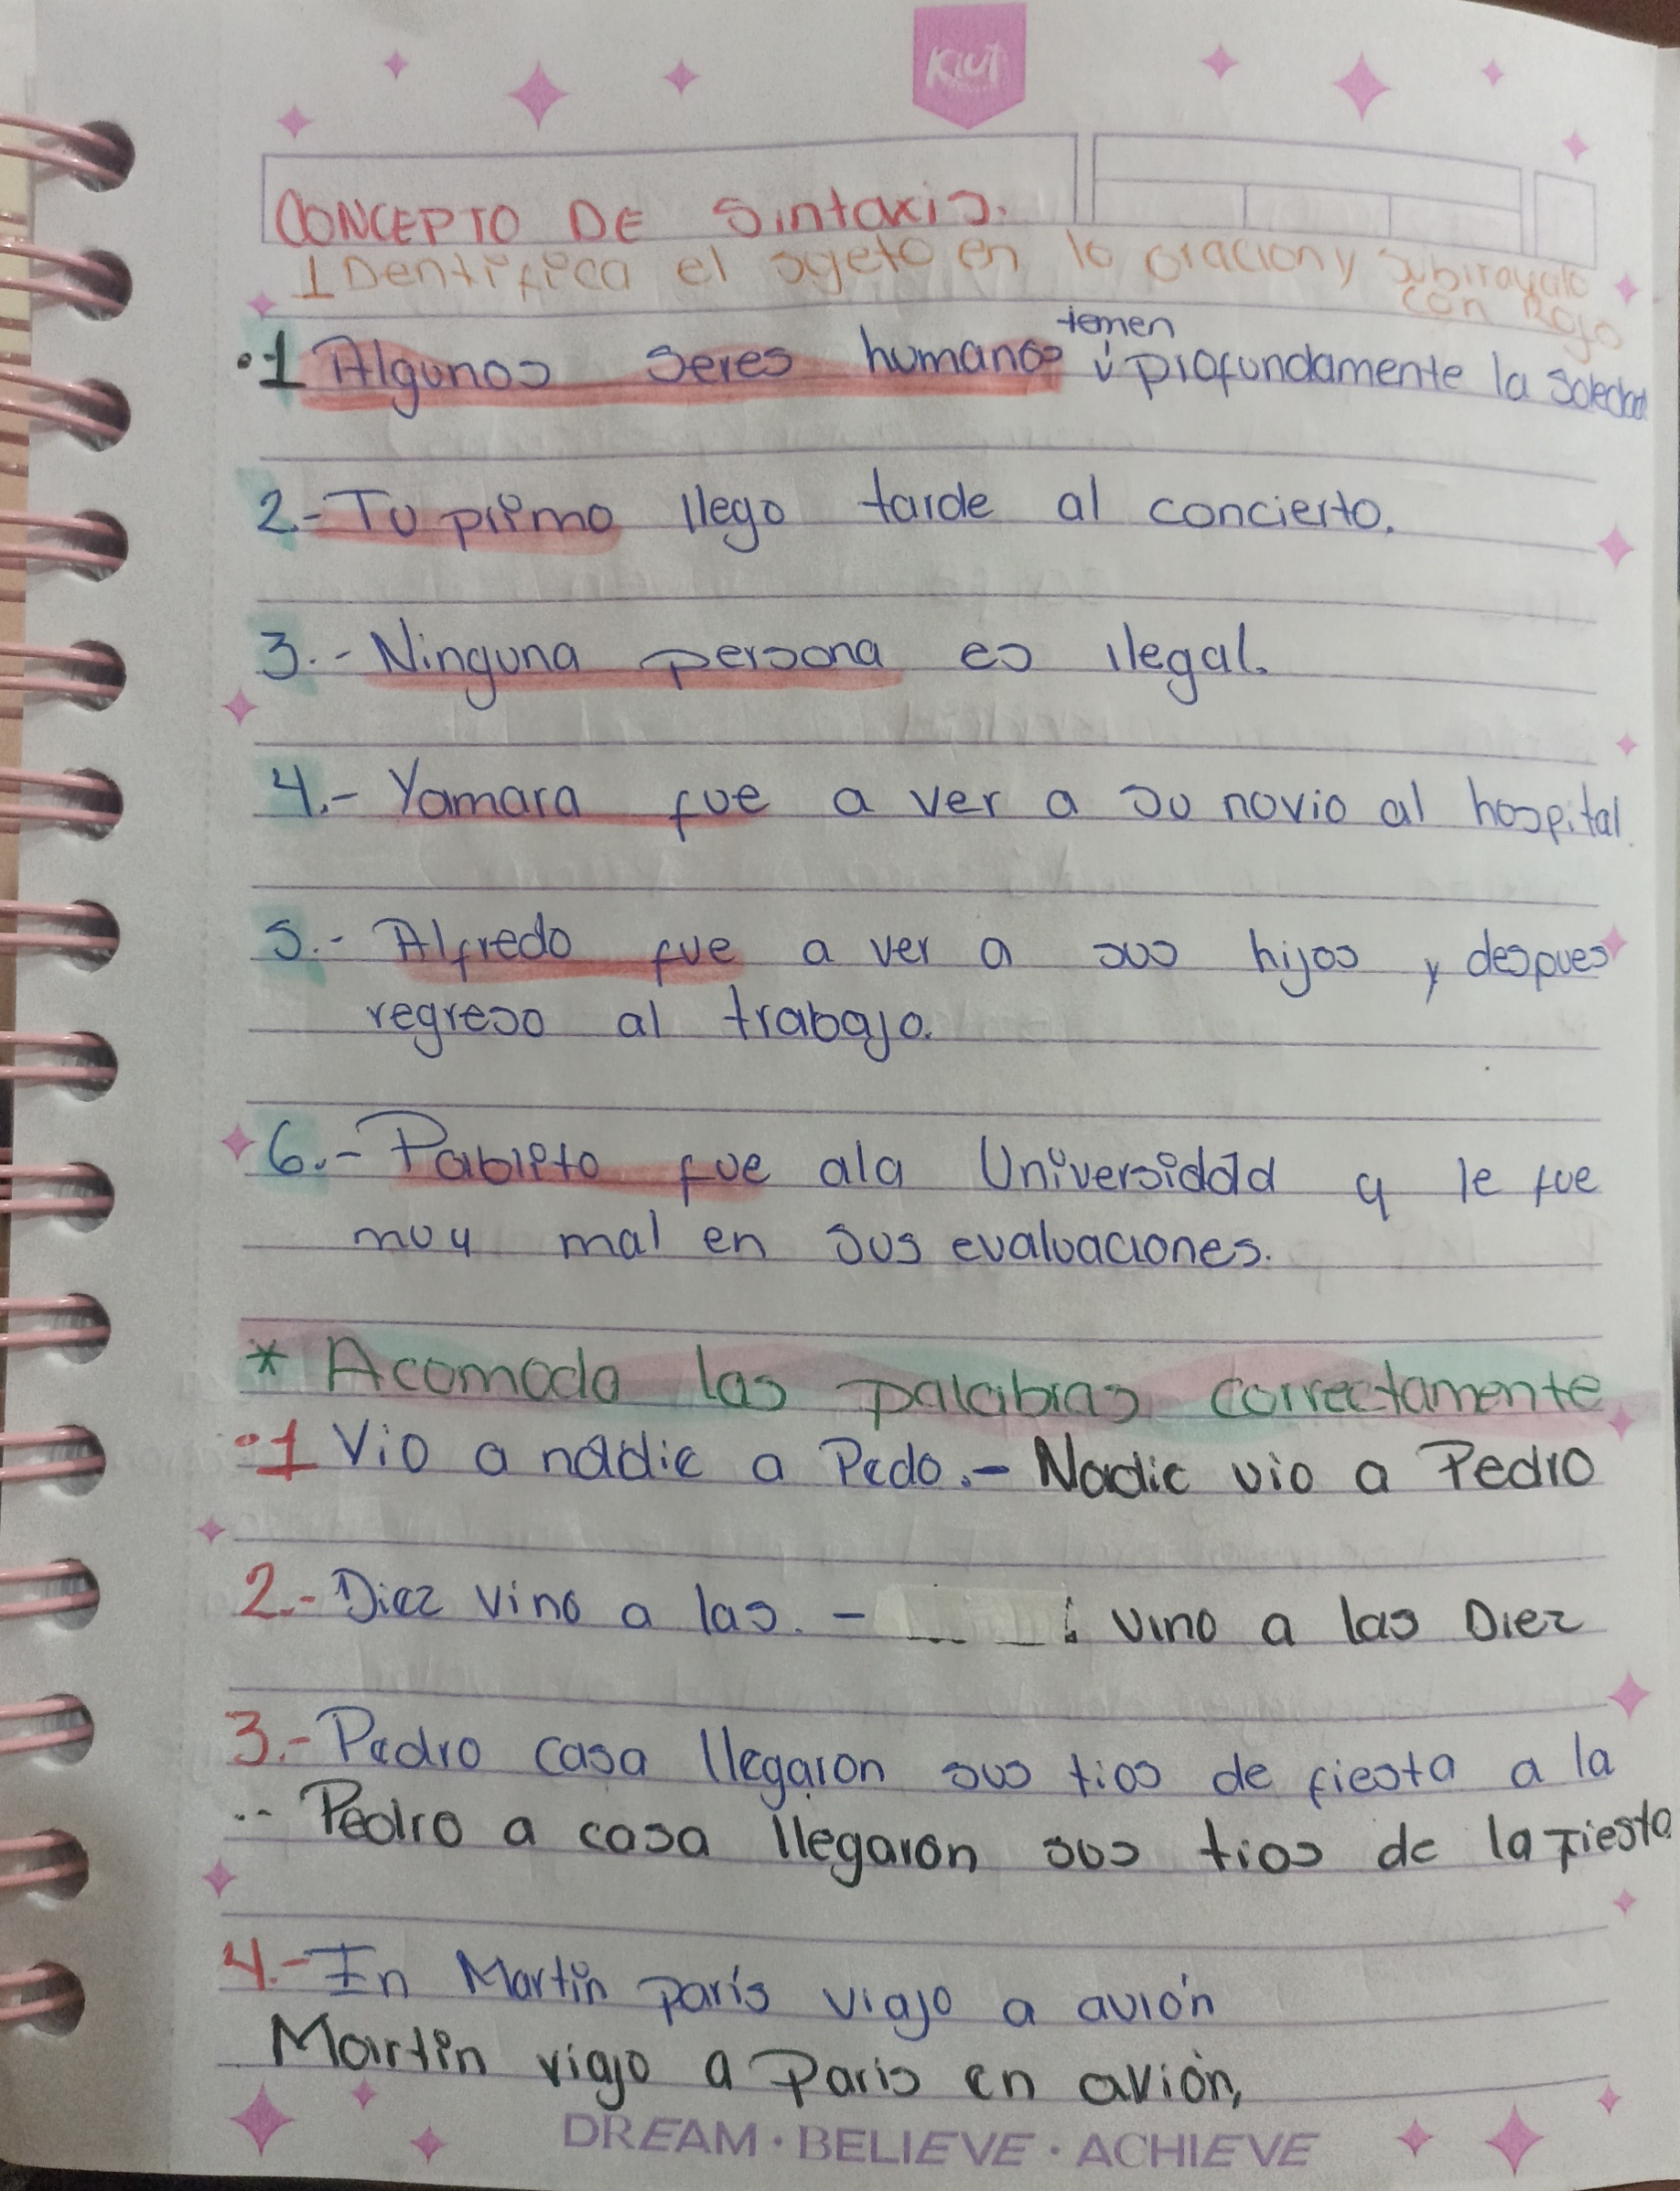 Kiut
CONCEPTO DE Sintaxis.
IDentifica el sgeto en la oracion y subirayalo
con Rojo
temen
•1 Algunos seres humanos profundamente la soledad
2.- Tu primo llego tarde al concierto.
3.- Ninguna persona es ilegal.
4.- Yamara fue a ver a su novio al hospital.
5.- Alfredo fue a ver a sus hijos y despues
regreso al trabajo.
6.- Pablito fue ala Universidad y le fue
muy mal en sus evaluaciones.
* Acomoda las palabras correctamente
•1 Vio a nadie a Pedo.- Nadie vio a Pedro
2.- Diez vino a las. - vino a las Diez
3.- Pedro casa llegaron sus tios de fiesta a la
.. Pedro a casa llegaron sus tios de la Fiesta
4.- In Martin parís viajo a avión
Martin viajo a Paris en avión,
DREAM · BELIEVE · ACHIEVE